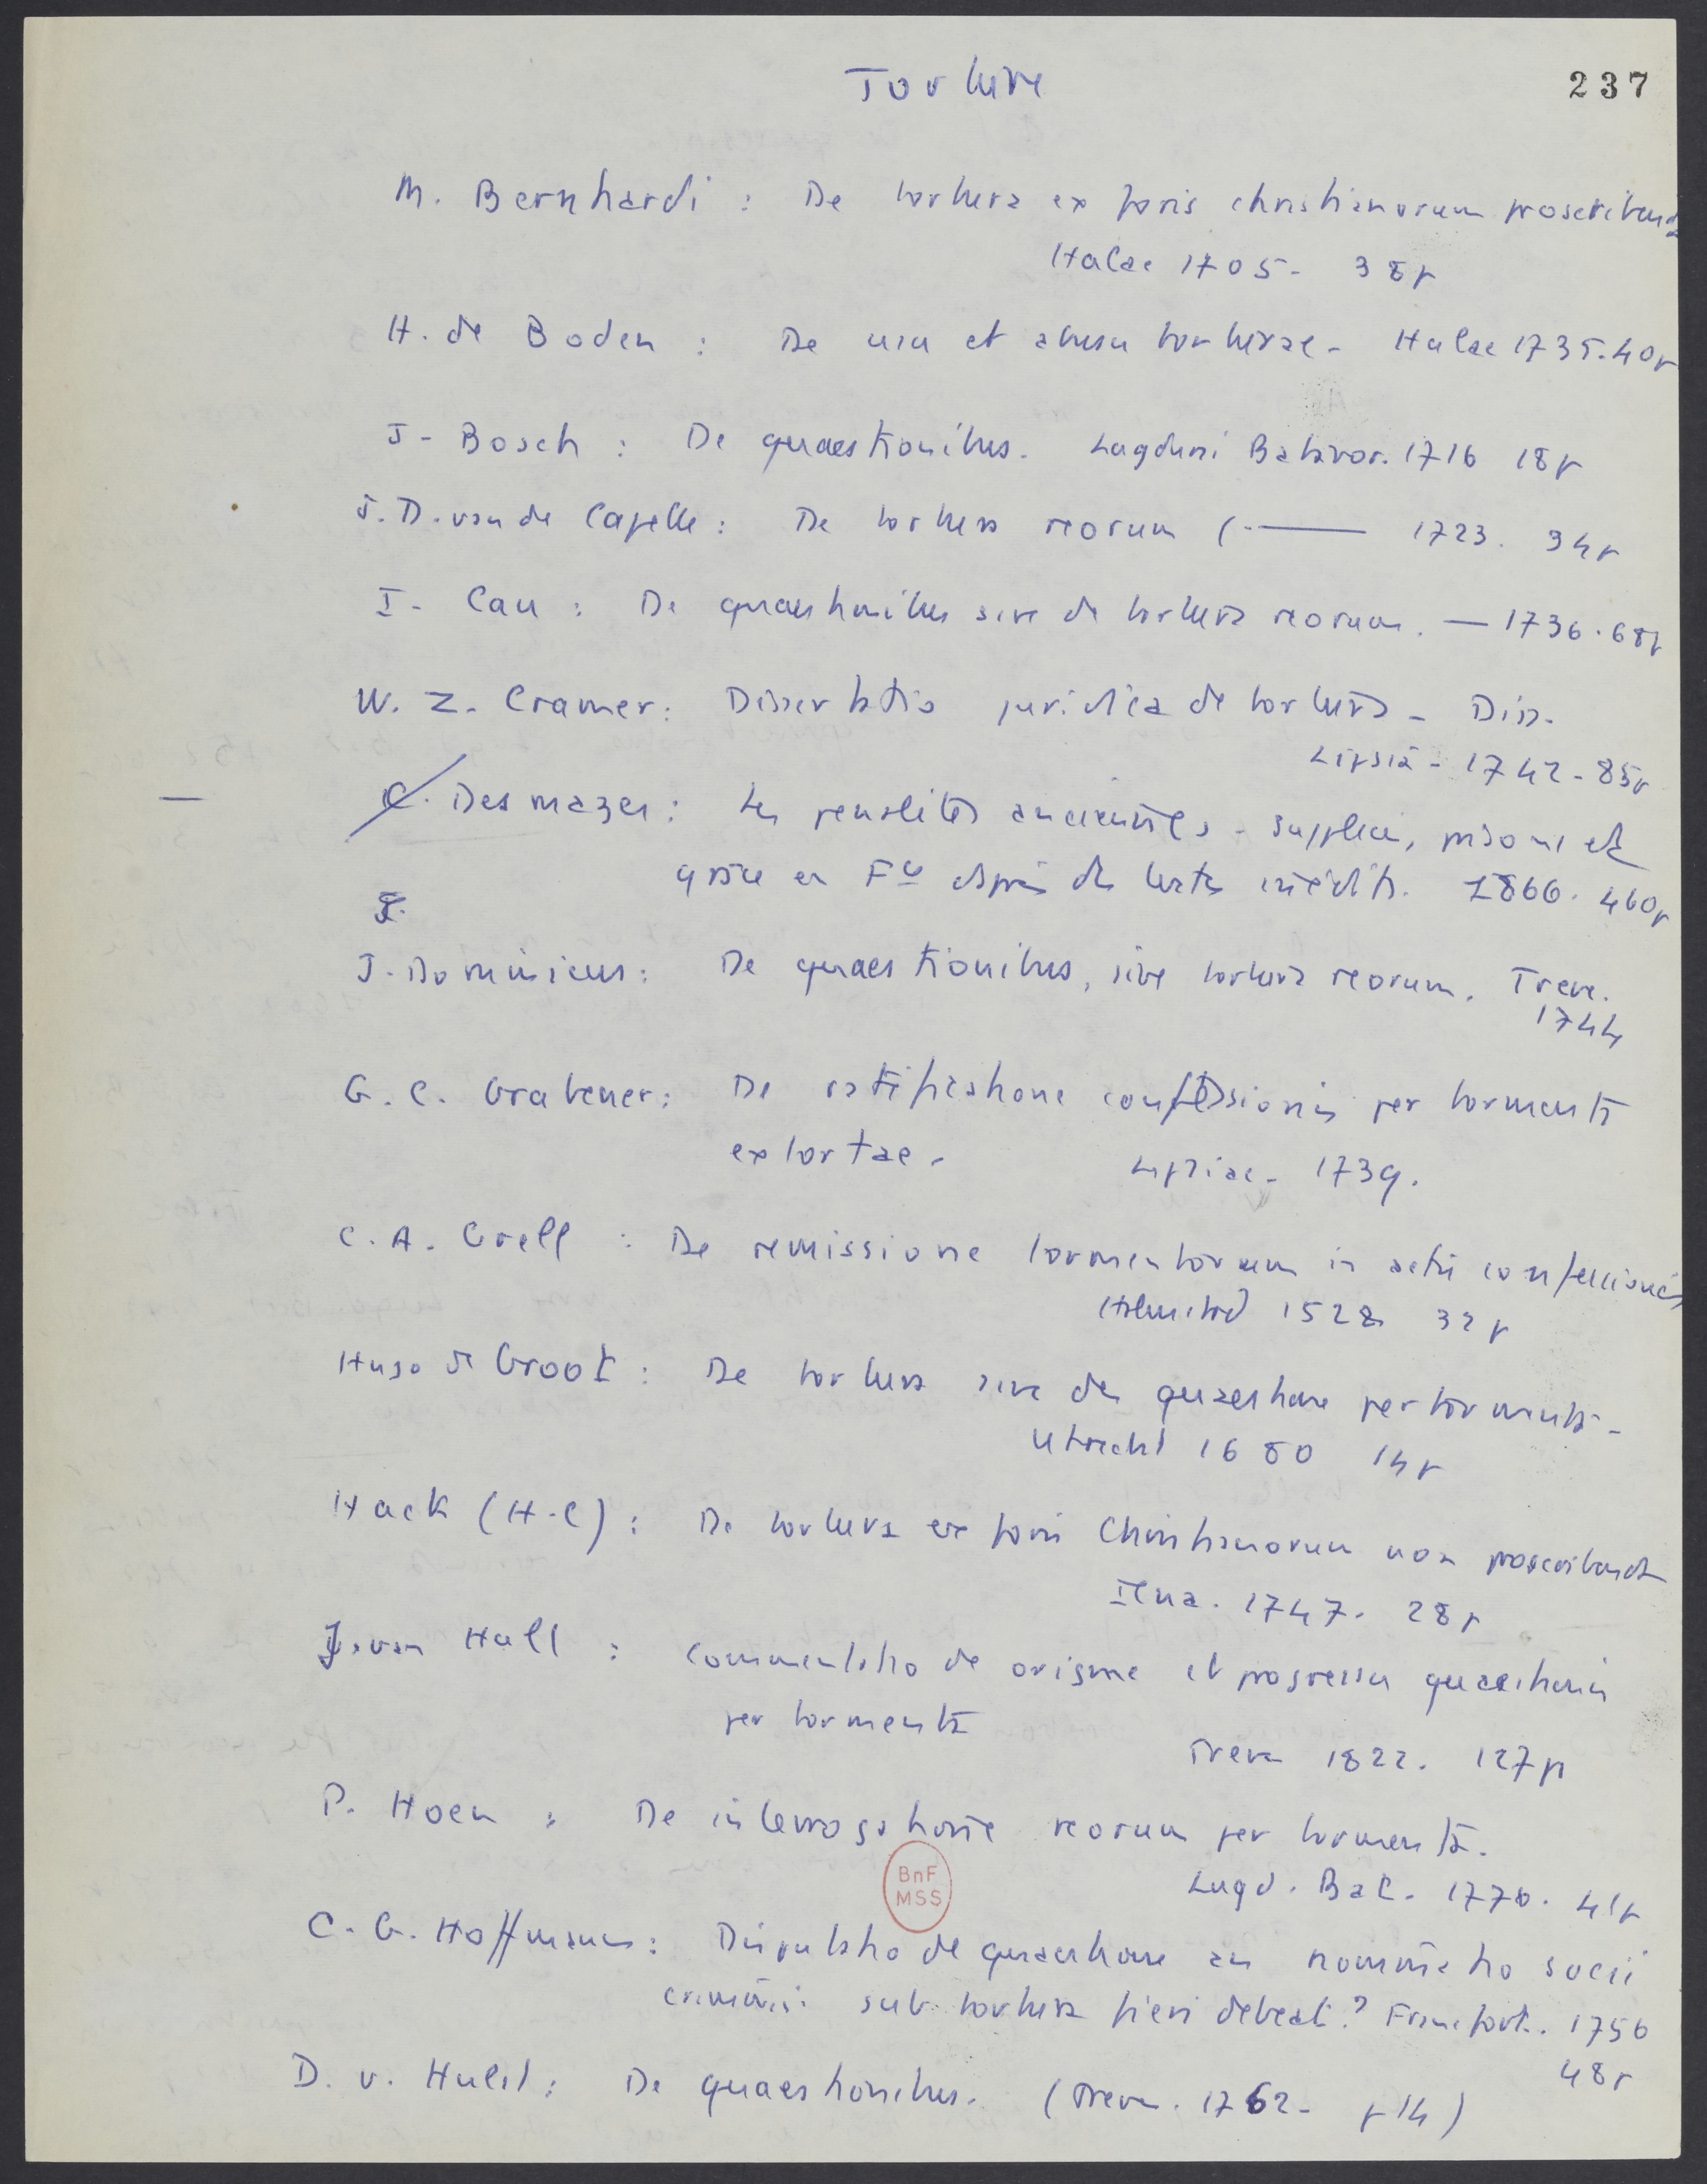 Torture
237
M. Bernhardi : De tortura ex foris christianorum proscribenda
Halae 1705 - 38p
H. de Boden : De usu et abusu torturae - Halae 1735. 40p
J - Bosch : De quaestionibus. Lugduni Batavor. 1716 18p
J. D. van de Capelle : De tortura reorum ( - — 1723. 34p
I - Cau : De quaestionibus sive de tortura reorum. — 1736. 68p
W. Z. Cramer : Dissertatio juridica de tortura - Diss.
Lipsia - 1742 - 85p
— C. Desmazes : Les penalités anciennes - Supplices, prisons et
grâce en Fce d'après des textes inédits. 1866. 460p
J. Dominicus : De quaestionibus, sive tortura reorum. Treve.
1744
G. C. Grabener : De ratificatione confessionis per tormenta
extortae - Lipsiae - 1739.
C. A. Grell : De remissione tormentorum in actu confessionis
Helmstad 1528 32p
Hugo de Groot : De tortura sive de quaestione per tormenta -
Utrecht 1680 14p
Hack (H-C) : De tortura ex foris Christianorum non proscribenda
Iena. 1747. 28p
J. van Hall : Commentatio de origine et progressu quaestionis
per tormenta
Treve 1822. 127p
P. Hoen : De interrogatione reorum per tormenta.
Lugd. Bat. 1770. 41p
BnF
MSS
C. G. Hoffmann : Disputatio de quaestione an nominatio socii
criminis sub tortura fieri debeat? Francfort. 1756
48p
D. v. Hulst : De quaestionibus. (Treve. 1762 - p 14)